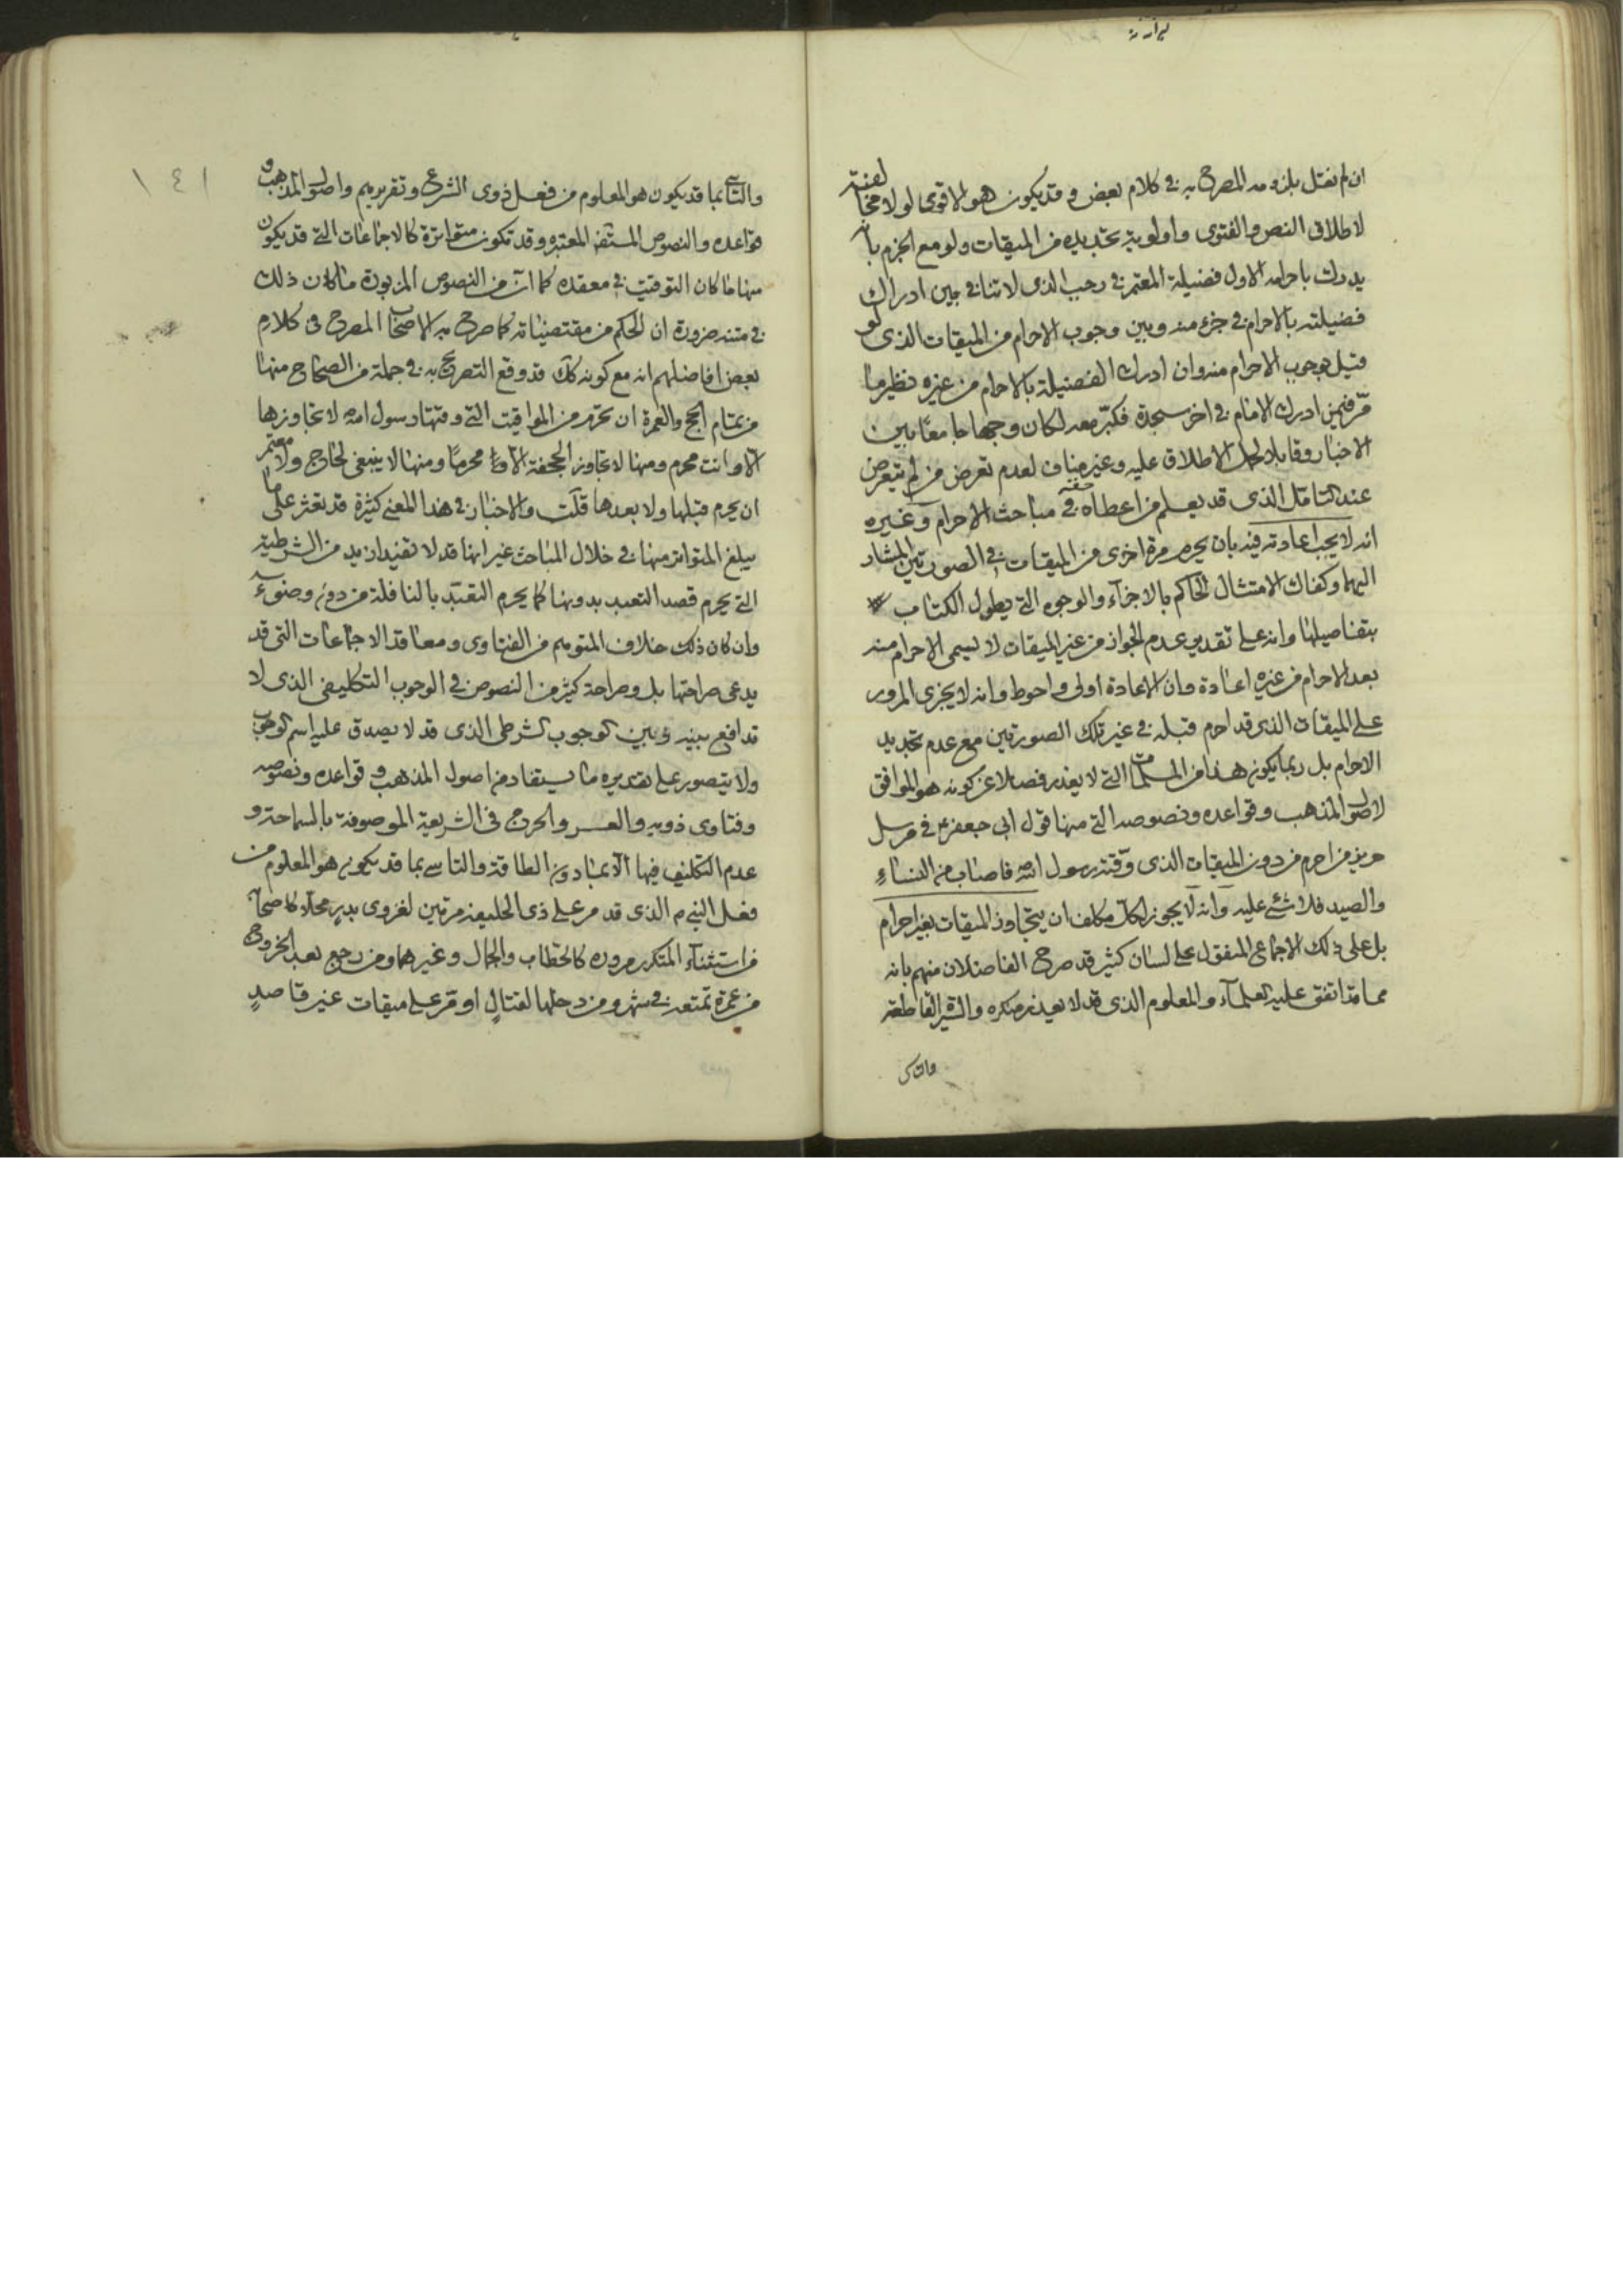 ان لم نقتل بلزومه المصرح به في كلام بعض وقد يكون هو الاقوى لولا مخالفته
لاطلاق النص والفتوى واولوية تجديده من الميقات ولو مع الجزم بانه
يدرك باحرامه الاول فضيلة المعتمر في رجب الذى لا تنافي بين ادراك
فضيلته بالاحرام في جزء منه وبين وجوب الاحرام من الميقات الذى لو
قيل بوجوب الاحرام منه وان ادرك الفضيلة بالاحرام من غيره نظير ما
مر فيمن ادرك الامام في اخر سجدة فكبر معه لكان وجيها جامعا بين
الاخبار وقابلا لحمل الاطلاق عليه وغير مناف لعدم تعرض من لم يتعرض
عند التامل الذى قد يعلم من اعطاه حقه في مباحث الاحرام وغيره
انه لا يجب اعادته فيه بان يحرم مرة اخرى من الميقات في الصورتين المشار
اليهما وكفاك الامتثال الحاكم بالاجزآء والوجوه التي يطول الكتاب
بتفاصيلها وانه على تقدير عدم الجواز من غير الميقات لا يسمى الاحرام منه
بعد الاحرام من غيره اعادة وان الاعادة اولى واحوط وانه لا يجزى المرور
على الميقات الذى قد احرم قبله في غير تلك الصورتين مع عدم تجديد
الاحرام بل ربما يكون هذا من المسلمات التي لا يعذر فضلا عن كونه هو الموافق
لاصول المذهب وقواعده ونصوصه التي منها قول ابي جعفر ع في مرسل
حريز من احرم من دون الميقات الذى وقته رسول الله فاصاب من النساء
والصيد فلا شئ عليه وانه لا يجوز لكل مكلف ان يتجاوز الميقات بغير احرام
بل على ذلك الاجماع المنقول على لسان كثير قد صرح الفاضلان منهم بانه
مما قد اتفق عليه العلمآء والمعلوم الذى قد لا يعذر منكره والسير القاطعة
والتاسى
١٤١
والتاسي بما قد يكون هو المعلوم من فعل ذوى الشرع وتقريرهم واصول المذهب و
قواعده والنصوص المستفيضة المعتبره وقد تكون متواترة كالاجماعات التي قد يكون
منها ما كان التوقيت في معقده كما ان من النصوص المزبورة ما كان ذلك
في متنه ضرورة ان الحكم من مقتضياته كما صرح به الاصحاب المصرح في كلام
بعض افاضلهم انه مع كونه كك قد وقع التصريح به في جملة من الصحاح منها
من تمام الحج والعمرة ان تحرم من المواقيت التي وقتها رسول الله لا تجاوزها
الا وانت محرم ومنها لا تجاوز الجحفة الا محرما ومنها لا ينبغي لحاج ولا معتمر
ان يحرم قبلها ولا بعدها قلت والاخبار في هذا المعنى كثيرة قد تعثر على ما
يبلغ المتواتر منها في خلال المباحث غير انها قد لا تفيد ازيد من الشرطية
التي يحرم قصد التعبد بدونها كما يحرم التعبد بالنافلة من دون وضوء
وان كان ذلك خلاف المتوهم من الفتاوى ومعاقد الاجماعات التي قد
يدعى صراحتها بل وصراحة كثير من النصوص في الوجوب التكليفي الذى لا
تدافع بينه وبين الوجوب الشرطي الذى قد لا يصدق عليه اسم الوجوب
ولا يتصور على تقديره ما يستفاد من اصول المذهب وقواعده ونصوصه
وفتاوى ذويه والعسر والحرج في الشريعة الموصوفة بالسماحة و
عدم التكليف فيها الا بما دون الطاقة والتاسي بما قد يكون هو المعلوم من
فعل النبي ص الذى قد مر على ذى الحليفة مرتين لغزوى بدر محلا كاصحابه
من استثنآء المتكرر مروره كالحطاب والجمال وغيرهما ومن رجع بعد الخروج
من عمرة تمتعه في شهر ومن دخلها لقتال او مر على ميقات غير قاصد